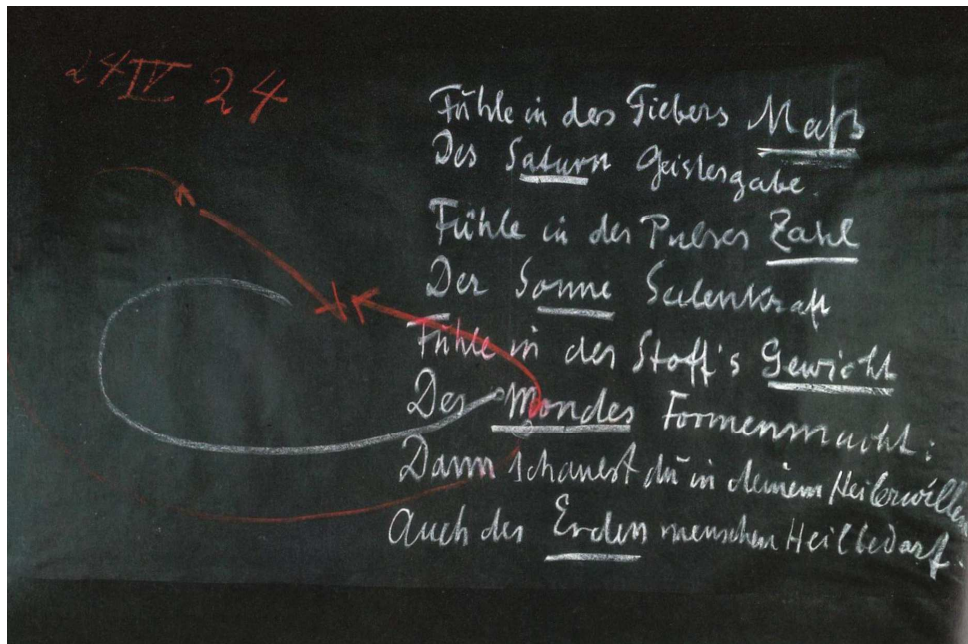 24 IV 24
Fühle in des Fiebers Maß
Des Saturn Geistergabe.
Fühle in des Pulses Zahl
Der Sonne Seelenkraft
Fühle in des Stoff's Gewicht
Des Mondes Formenmacht:
Dann schauest du in deinem Heilerwillen
Auch des Erdenmenschen Heilbedarf.